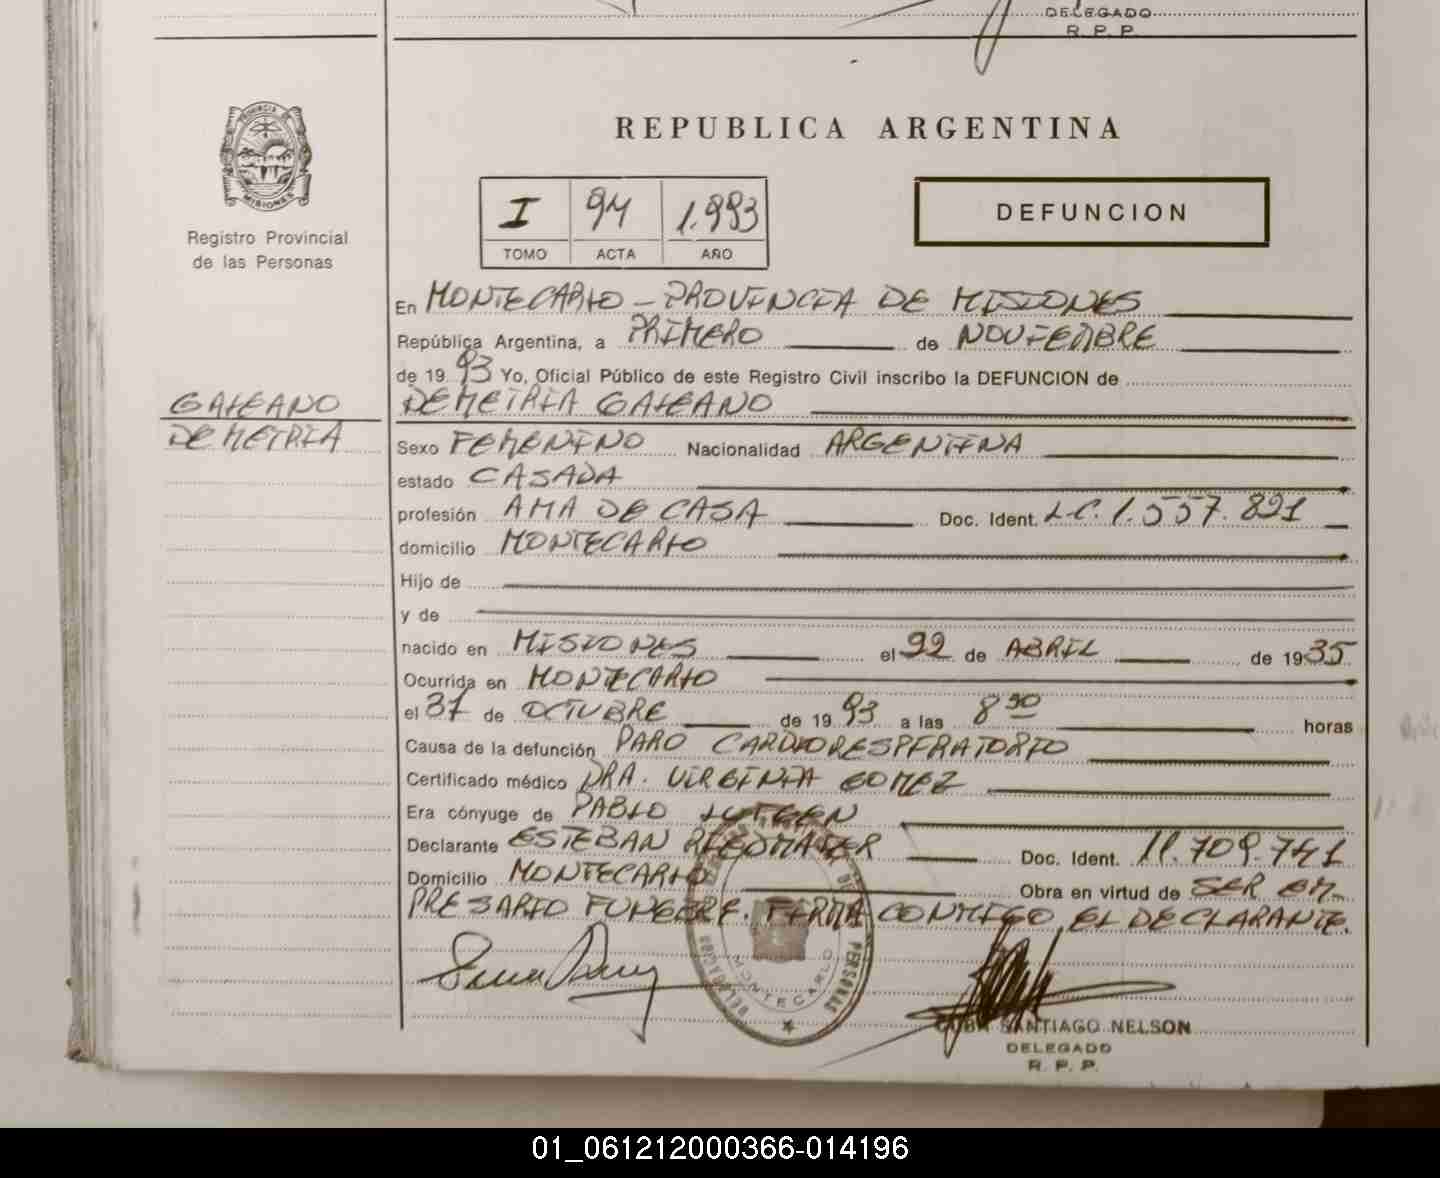 DELEGADO
R. P. P.
PROVINCIA DE
MISIONES
Registro Provincial
de las Personas
REPUBLICA ARGENTINA
I 94 1.993
TOMO ACTA AÑO
DEFUNCION
En MONTECARLO - PROVINCIA DE MISIONES
República Argentina, a PRIMERO de NOVIEMBRE
de 19 93 Yo, Oficial Público de este Registro Civil inscribo la DEFUNCION de
GALEANO
DEMETRIA
DEMETRIA GALEANO
Sexo FEMENINO Nacionalidad ARGENTINA
estado CASADA
profesión AMA DE CASA Doc. Ident. L.C. 1.557.821
domicilio MONTECARLO
Hijo de
y de
nacido en MISIONES el 22 de ABRIL de 1935
Ocurrida en MONTECARLO
el 31 de OCTUBRE de 19 93 a las 8 30 horas
Causa de la defunción PARO CARDIORESPIRATORIO
Certificado médico DRA. VIRGINIA GOMEZ
Era cónyuge de PABLO
Declarante ESTEBAN Doc. Ident. 11.709.741
Domicilio MONTECARLO Obra en virtud de SER EM-
PRESARIO FUNEBRE. FIRMA CONMIGO EL DECLARANTE.
DELEGACION DE PERSONAS
MONTECARLO
SANTIAGO NELSON
DELEGADO
R. P. P.
01_061212000366-014196